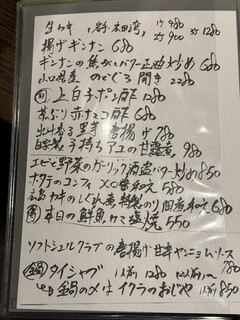 生カキ 岩手・広田湾 1ヶ 480
2ヶ 900 3ヶ 1280
揚げギンナン 680
ギンナンの焦がしバター正油炒め 680
山口県産 のどぐろ 開き 2280
上白子ポン酢 1280
茶ぶり赤ナマコ酢 680
出汁 里芋 唐揚げ 780
自家製 子持ちアユの甘露煮 980
エビと野菜のガーリック酒盗バター炒め 850
ホタテのコンフィ 和え 780
広島カキのしぐれ煮 特製のり佃煮和え 680
本日の鮮魚カマ塩焼 550
ソフトシェルクラブの唐揚げ 甘辛ヤンニョムソース 780
鍋 タイシャブ 1人前 1280 (2人前〜)
鍋の〆は イクラのおじや 1人前 850